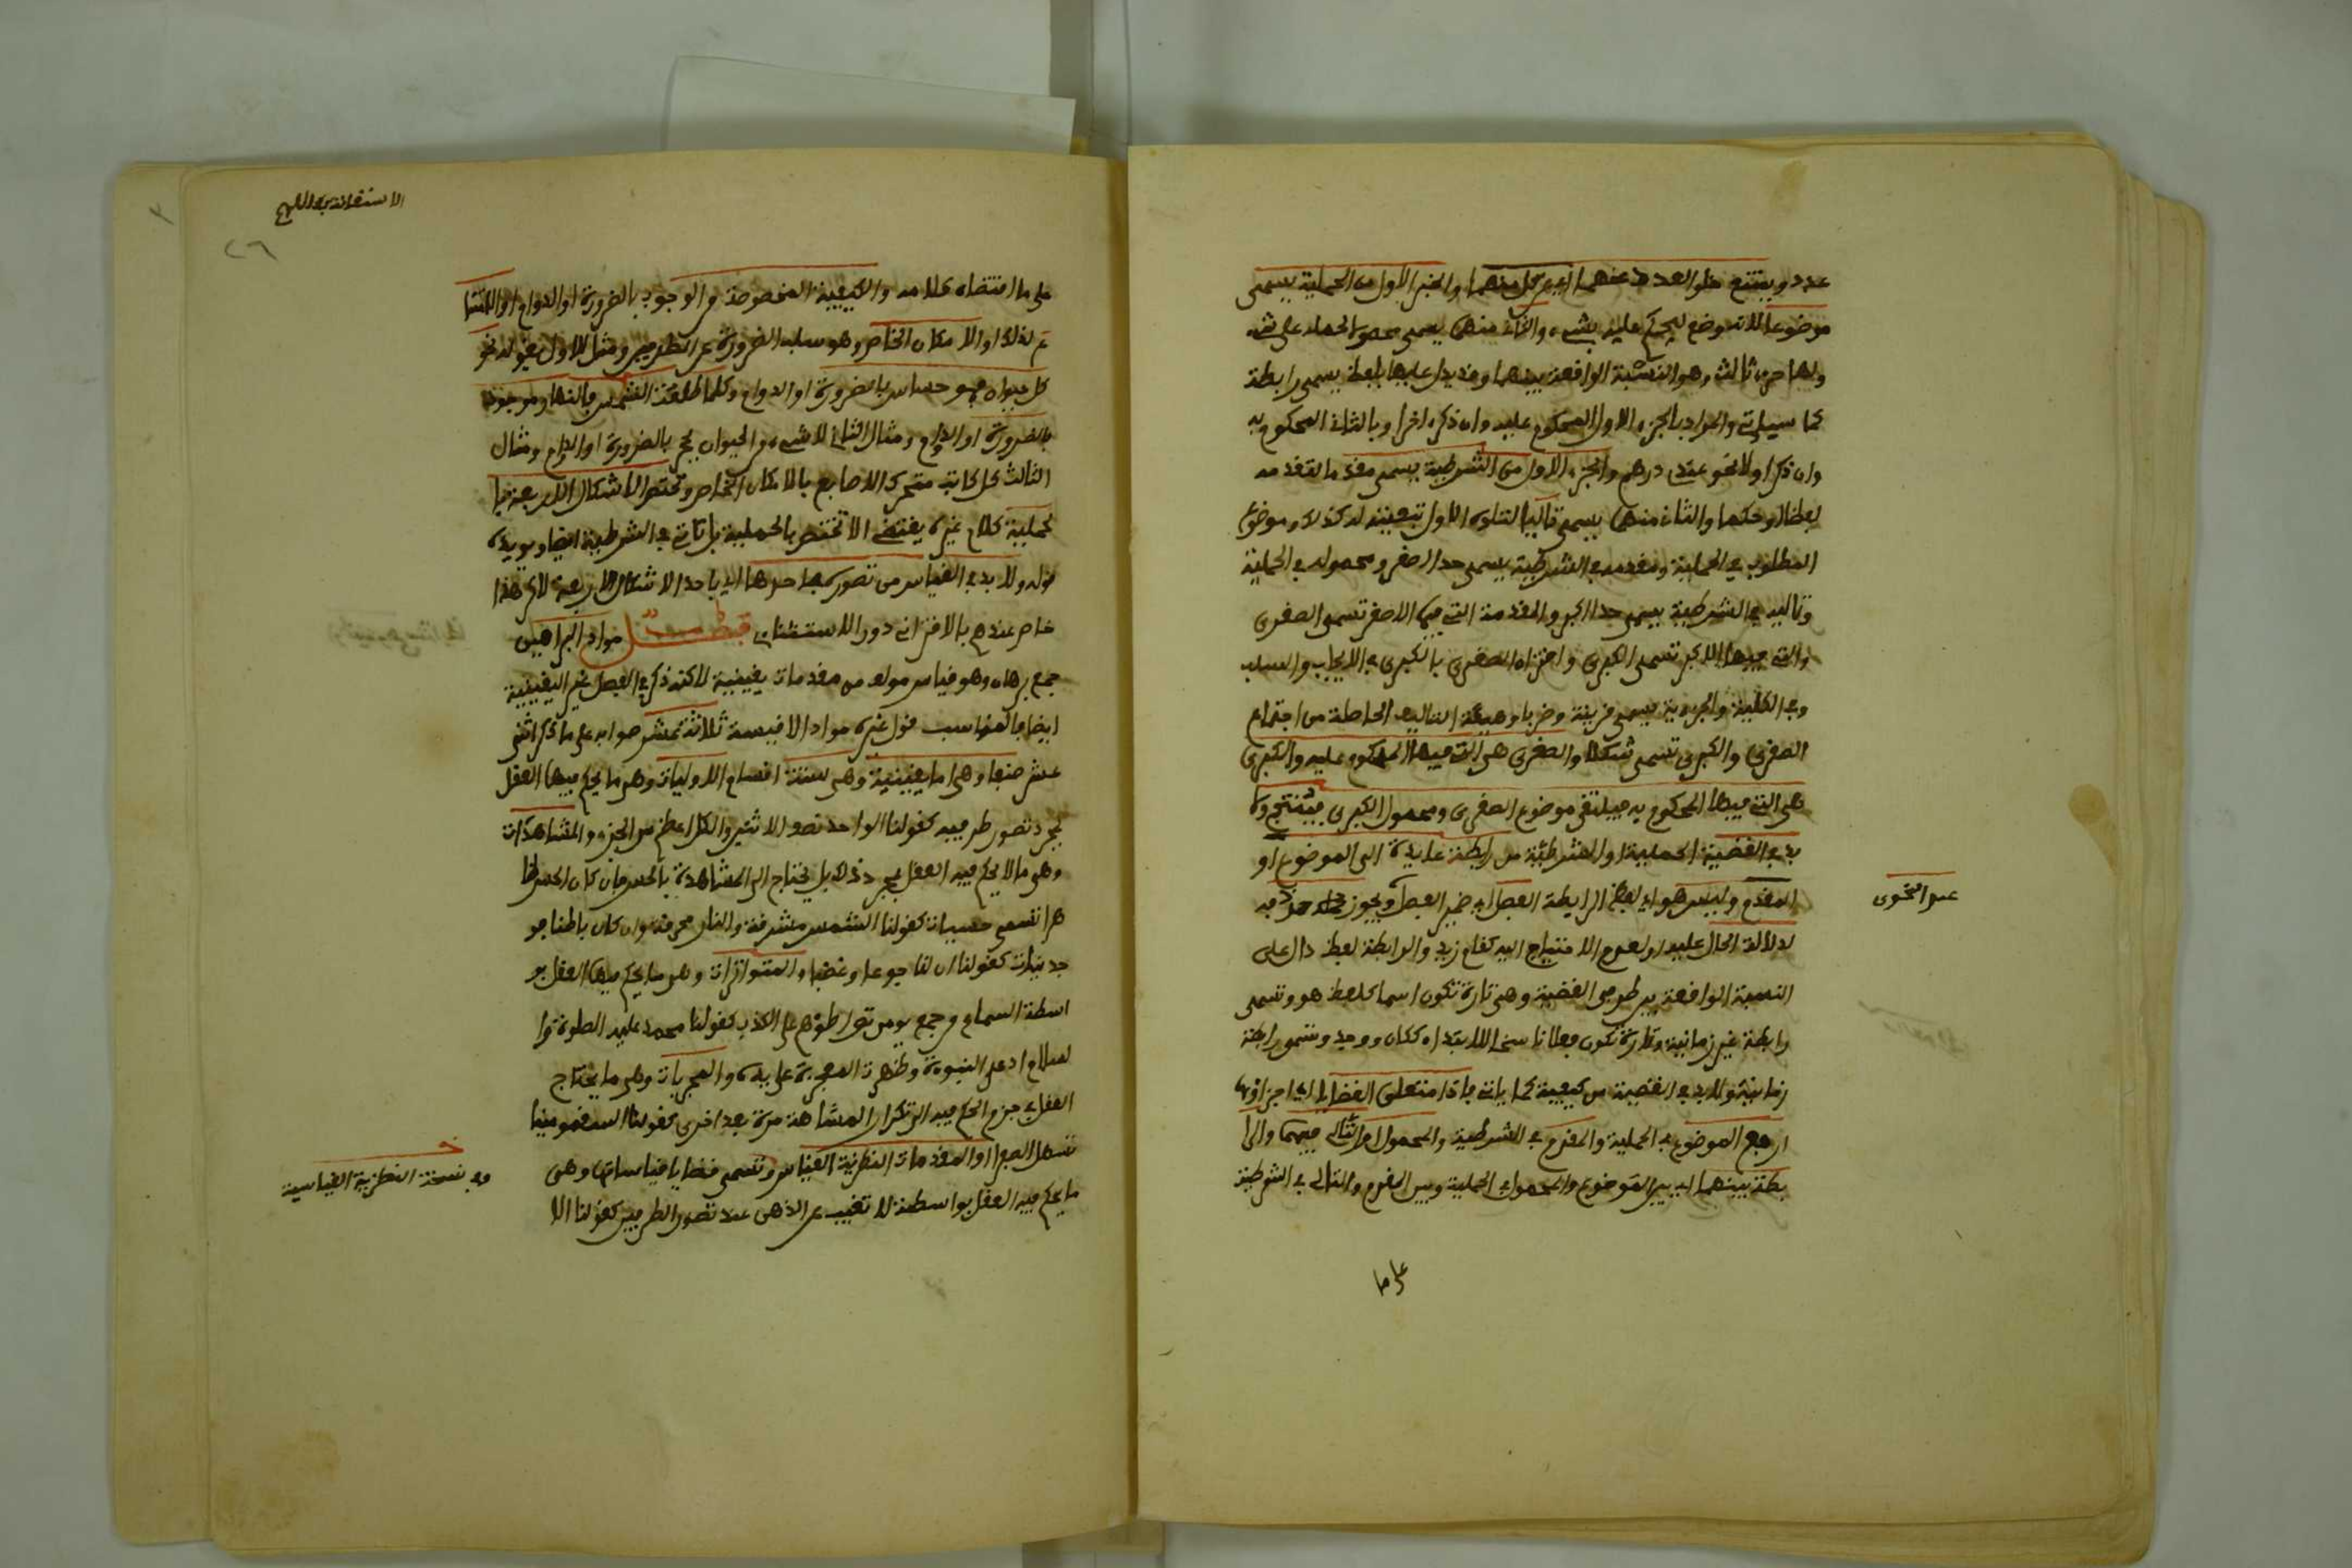 عدد ويمتنع خلو العدد عنهما اي عن كل منهما والجزء الاول من الحملية يسمى
موضوعا لانه وضع ليحكم عليه بشيء والثاني منهما يسمى محمولا لحمله على شيء
ولها جزء ثالث وهو النسبة الواقعة بينهما وقد يدل عليها بلفظ يسمى رابطة
كما سياتي والمراد بالجزء الاول المحكوم عليه وان ذكر اخرا وبالثاني المحكوم به
وان ذكر اولا نحو عندي درهم والجزء الاول من الشرطية يسمى مقدما لتقدمه
لفظا او حكما والثاني منهما يسمى تاليا لتلوه الاول تبعيته له كذلك وموضوع
المطلوب في الحملية ومقدمه في الشرطية يسمى حدا اصغر ومحموله في الحملية
وتاليه في الشرطية يسمى حدا اكبر والمقدمة التي فيها الاصغر تسمى الصغرى
والتي فيها الاكبر تسمى الكبرى واقتران الصغرى بالكبرى في الايجاب والسلب
وفي الكلية والجزيية يسمى قرينة وضربا وهيئة التاليف الحاصلة من اجتماع
الصغرى والكبرى تسمى شكلا والصغرى هي التي فيها المحكوم عليه والكبرى
هي التي فيها المحكوم به فيلتقي موضوع الصغرى ومحمول الكبرى فينتج ولا
بد في القضية الحملية او الشرطية من رابطة عايدة الى الموضوع او
المقدم وليس هو اي لفظ الرابطة الفصل اي ضمير الفصل ويجوز حذفه
لدلالة الحال عليه او لعدم الاحتياج اليه كقام زيد والرابطة لفظ دال على
النسبة الواقعة بين طرفي القضية وهي تارة تكون اسما كلفظ هو وتسمى
رابطة غير زمانية وتارة تكون فعلا ناسخا للابتداء ككان ووجد وتسمى رابطة
زمانية ولا بد في القضية من كيفية كما ياتي فاذا متعلق القضايا اي اجزاؤها
اربع الموضوع في الحملية والمقدم في الشرطية والمحمول او التالي فيهما والرا
بطة بينهما اي بين الموضوع والمحمول في الحملية وبين المقدم والتالي في الشرطية
على ما
عند النحوى
٢٦
على ما اقتضاه كلامه والكيفية المخصوصة من الوجوب بالضرورة او الدوام او الامتنا
ع لذلك او الامكان الخاص وهو سلب الضرورة عن الطرفين ومثل للاول بقوله نحو
كل حيوان فهو حساس بالضرورة او الدوام وكلما طلعت الشمس فالنهار موجود
بالضرورة او الدوام ومثال الثاني لا شيء من الحيوان بحجر بالضرورة او الدوام ومثال
الثالث كل كاتب متحرك الاصابع بالامكان الخاص وتختص الاشكال الاربعة با
لحملية كلام غيره يقتضي الا تختص بالحملية بل تاتي في الشرطية ايضا ويويده
قوله ولا بد في القياس من تصوره باحدها اي باحد الاشكال الاربعة لاكن هذا
خاص عندهم بالاقتراني دون الاستثنائي فصل مواد البراهين
جمع برهان وهو قياس مولف من مقدمات يقينية لاكنه ذكر في الفصل غير اليقينية
ايضا فالمناسب قول غيره مواد الاقيسة ثلاثة عشر صوابه على ما ذكر اثني
عشر صنفا وهي اما يقينية وهي ستة اقسام الاوليات وهي ما يحكم فيها العقل
بمجرد تصور طرفيه كقولنا الواحد نصف الاثنين والكل اعظم من الجزء والمشاهدات
وهي ما لا يحكم فيه العقل بمجرد ذلك بل يحتاج الى المشاهدة بالحس فان كان الحس ظا
هرا تسمى حسيات كقولنا الشمس مشرقة والنار محرقة وان كان باطنا فو
جدنيات كقولنا ان لنا جوعا وغضبا والمتواترات وهي ما يحكم فيها العقل بو
اسطة السماع من جمع يومن تواطؤهم على الكذب كقولنا محمد عليه الصلوة وا
لسلام ادعى النبوءة وظهرت المعجزة على يده والمجربات وهي ما يحتاج
العقل في جزم الحكم فيه الى تكرار المشاهدة مرة بعد اخرى كقولنا السقمونيا
تسهل الصفرا والمقدمات النظرية القياس وتسمى قضايا قياساتها وهي
ما يحكم فيه العقل بواسطة لا تغيب عن الذهن عند تصور الطرفين كقولنا الا
وفي نسخة النظرية القياسية